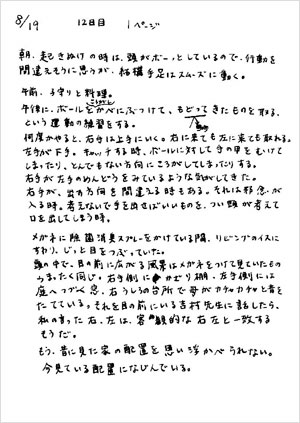 8/19 12日目 1ページ
朝、起きぬけの時は、頭がボーッとしているので、行動を
間違えそうに思うが、結構手足はスムーズに動く。
午前、子守りと料理。
午後に、ボールをかべにぶつけて、もどってきたものを取る、
ころがし
という運動の練習をする。
何度かやると、右手は上手にいく。右に来ても左に来ても取れる。
左手が下手。キャッチする時、ボールに対して手の甲をむけて
しまったり、とんでもない方向にころがしてしまったりする。
右手が左手のめんどうをみているような気がしてきた。
右手が、出す方向を間違える時もある。それは邪念が
入る時。考えないで手を出せばいいものを、つい頭が考えて
口を出してしまう時。
メガネに除菌消臭スプレーをかけている間、リビングのイスに
すわり、じっと目をつぶっていた。
頭の中で、目の前に広がる風景はメガネをつけて見ていたもの
と全く同じ。右手側にかざり棚、左手側には
庭へつづく窓、右うしろの台所で母がカチャカチャと音を
たてている。それを目の前にいる吉村先生に話したら、
私の言った右、左は、客観的な右左と一致する
そうだ。
もう、昔に見た家の配置を思い浮かべられない。
今見ている配置になじんでいる。